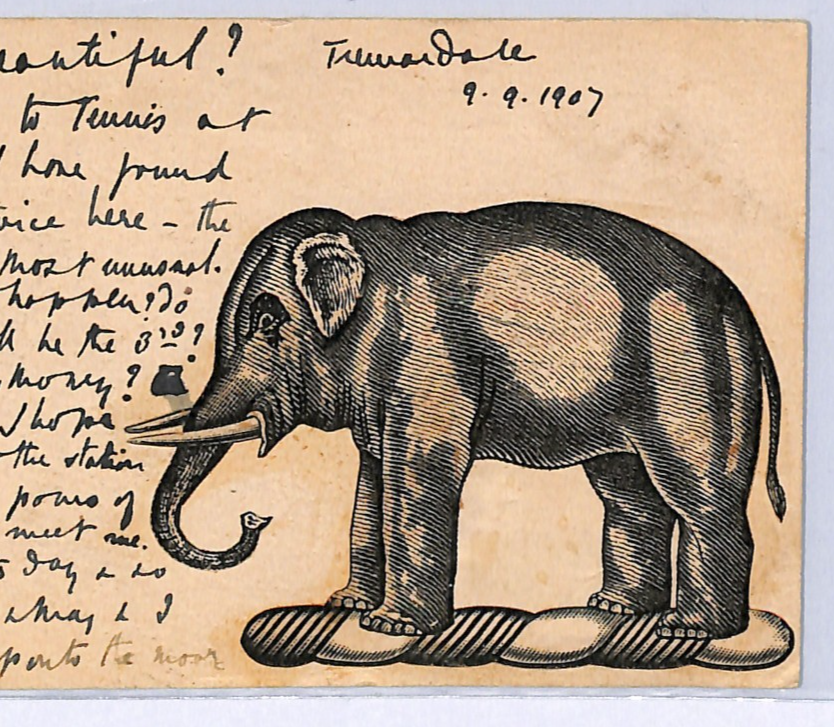 eautiful?
Trewardale
9.9.1907
to Tennis at
have found
wice here - the
most unusual.
happen? Do
ll he the 3rd?
money?
I hope
the station
pours of
meet me.
day & so
& May & I
onto the moor